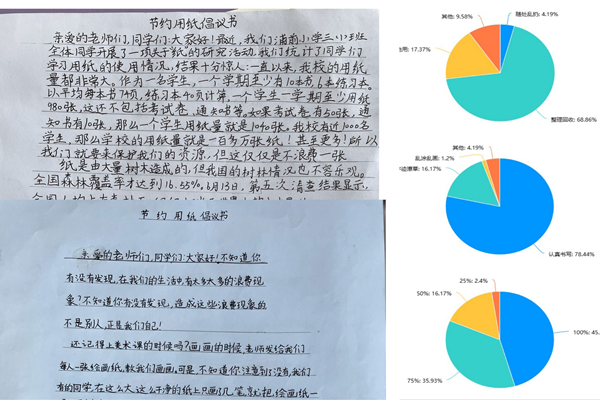 节约用纸倡议书
亲爱的老师们,同学们:大家好!最近,我们浦南小学三(2)班
全体同学开展了一项关于纸的研究活动。我们统计了同学们
学习用纸的使用情况,结果十分惊人:一直以来,我校的用纸
量都非常大。作为一名学生,一个学期至少有10本书,6本练习本。
以平均每本书74页,练习本40页计算,一个学生一学期至少用纸
980张,这还不包括考试卷、通知书等。如果考试卷有50张,通
知书有10张,那么一个学生用纸量就是1040张。我校有近1000名
学生,那么学校的用纸量就是一百多万张纸!甚至更多!所以
我们就要来保护我们的资源,但这仅仅是不浪费一张
纸是由大量树木造成的,但我国的树林情况也不容乐观。
全国森林覆盖率才达到16.55%,6月13日,第五次清查结果显示,
节约用纸倡议书
亲爱的老师们,同学们:大家好!不知道你
有没有发现,在我们的生活中,有太多太多的浪费现
象?不知道你有没有发现,造成这些浪费现象的
不是别人,正是我们自己!
还记得上美术课的时候吗?画画的时候,老师发给我们
每人一张绘画纸,教我们画画。可是,不知道你注意到了没有,我们
有的同学,在这么大,这么干净的纸上只画了几笔,就把绘画纸一
其他: 9.58%
随处乱扔: 4.19%
用: 17.37%
整理回收: 68.86%
其他: 4.19%
乱涂乱画: 1.2%
草: 16.17%
认真书写: 78.44%
25%: 2.4%
50%: 16.17%
100%: 45.
75%: 35.93%